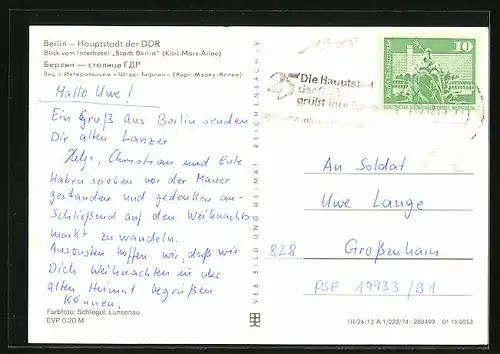 Berlin – Hauptstadt der DDR
Blick vom Interhotel „Stadt Berlin“ (Karl-Marx-Allee)
Берлин — столица ГДР
Вид с Интеротеля «Штадт Берлин» (Карл-Маркс-Аллее)
Hallo Uwe!
Ein Gruß aus Berlin senden
Dir alten Lanzer
Helga, Christian und Eule
Haben soeben vor der Mauer
gestanden und gedenken an-
Schließend auf den Weihnachts-
markt zu wandeln.
Ansonsten hoffen wir, daß wir
Dich Weihnachten in der
alten Heimat begrüßen
können.
Farbfoto: Schlegel, Lunzenau
EVP 0.20 M
VEB BILD UND HEIMAT REICHENBACH I. V.
25
Die Hauptstadt
der DDR
grüßt ihre
10
DEUTSCHE DEMOKRATISCHE REPUBLIK
An Soldat
Uwe Lange
828 Großenhain
PSF 19933/B1
III/26/13 A 1/222/74 280499 01 15 0053